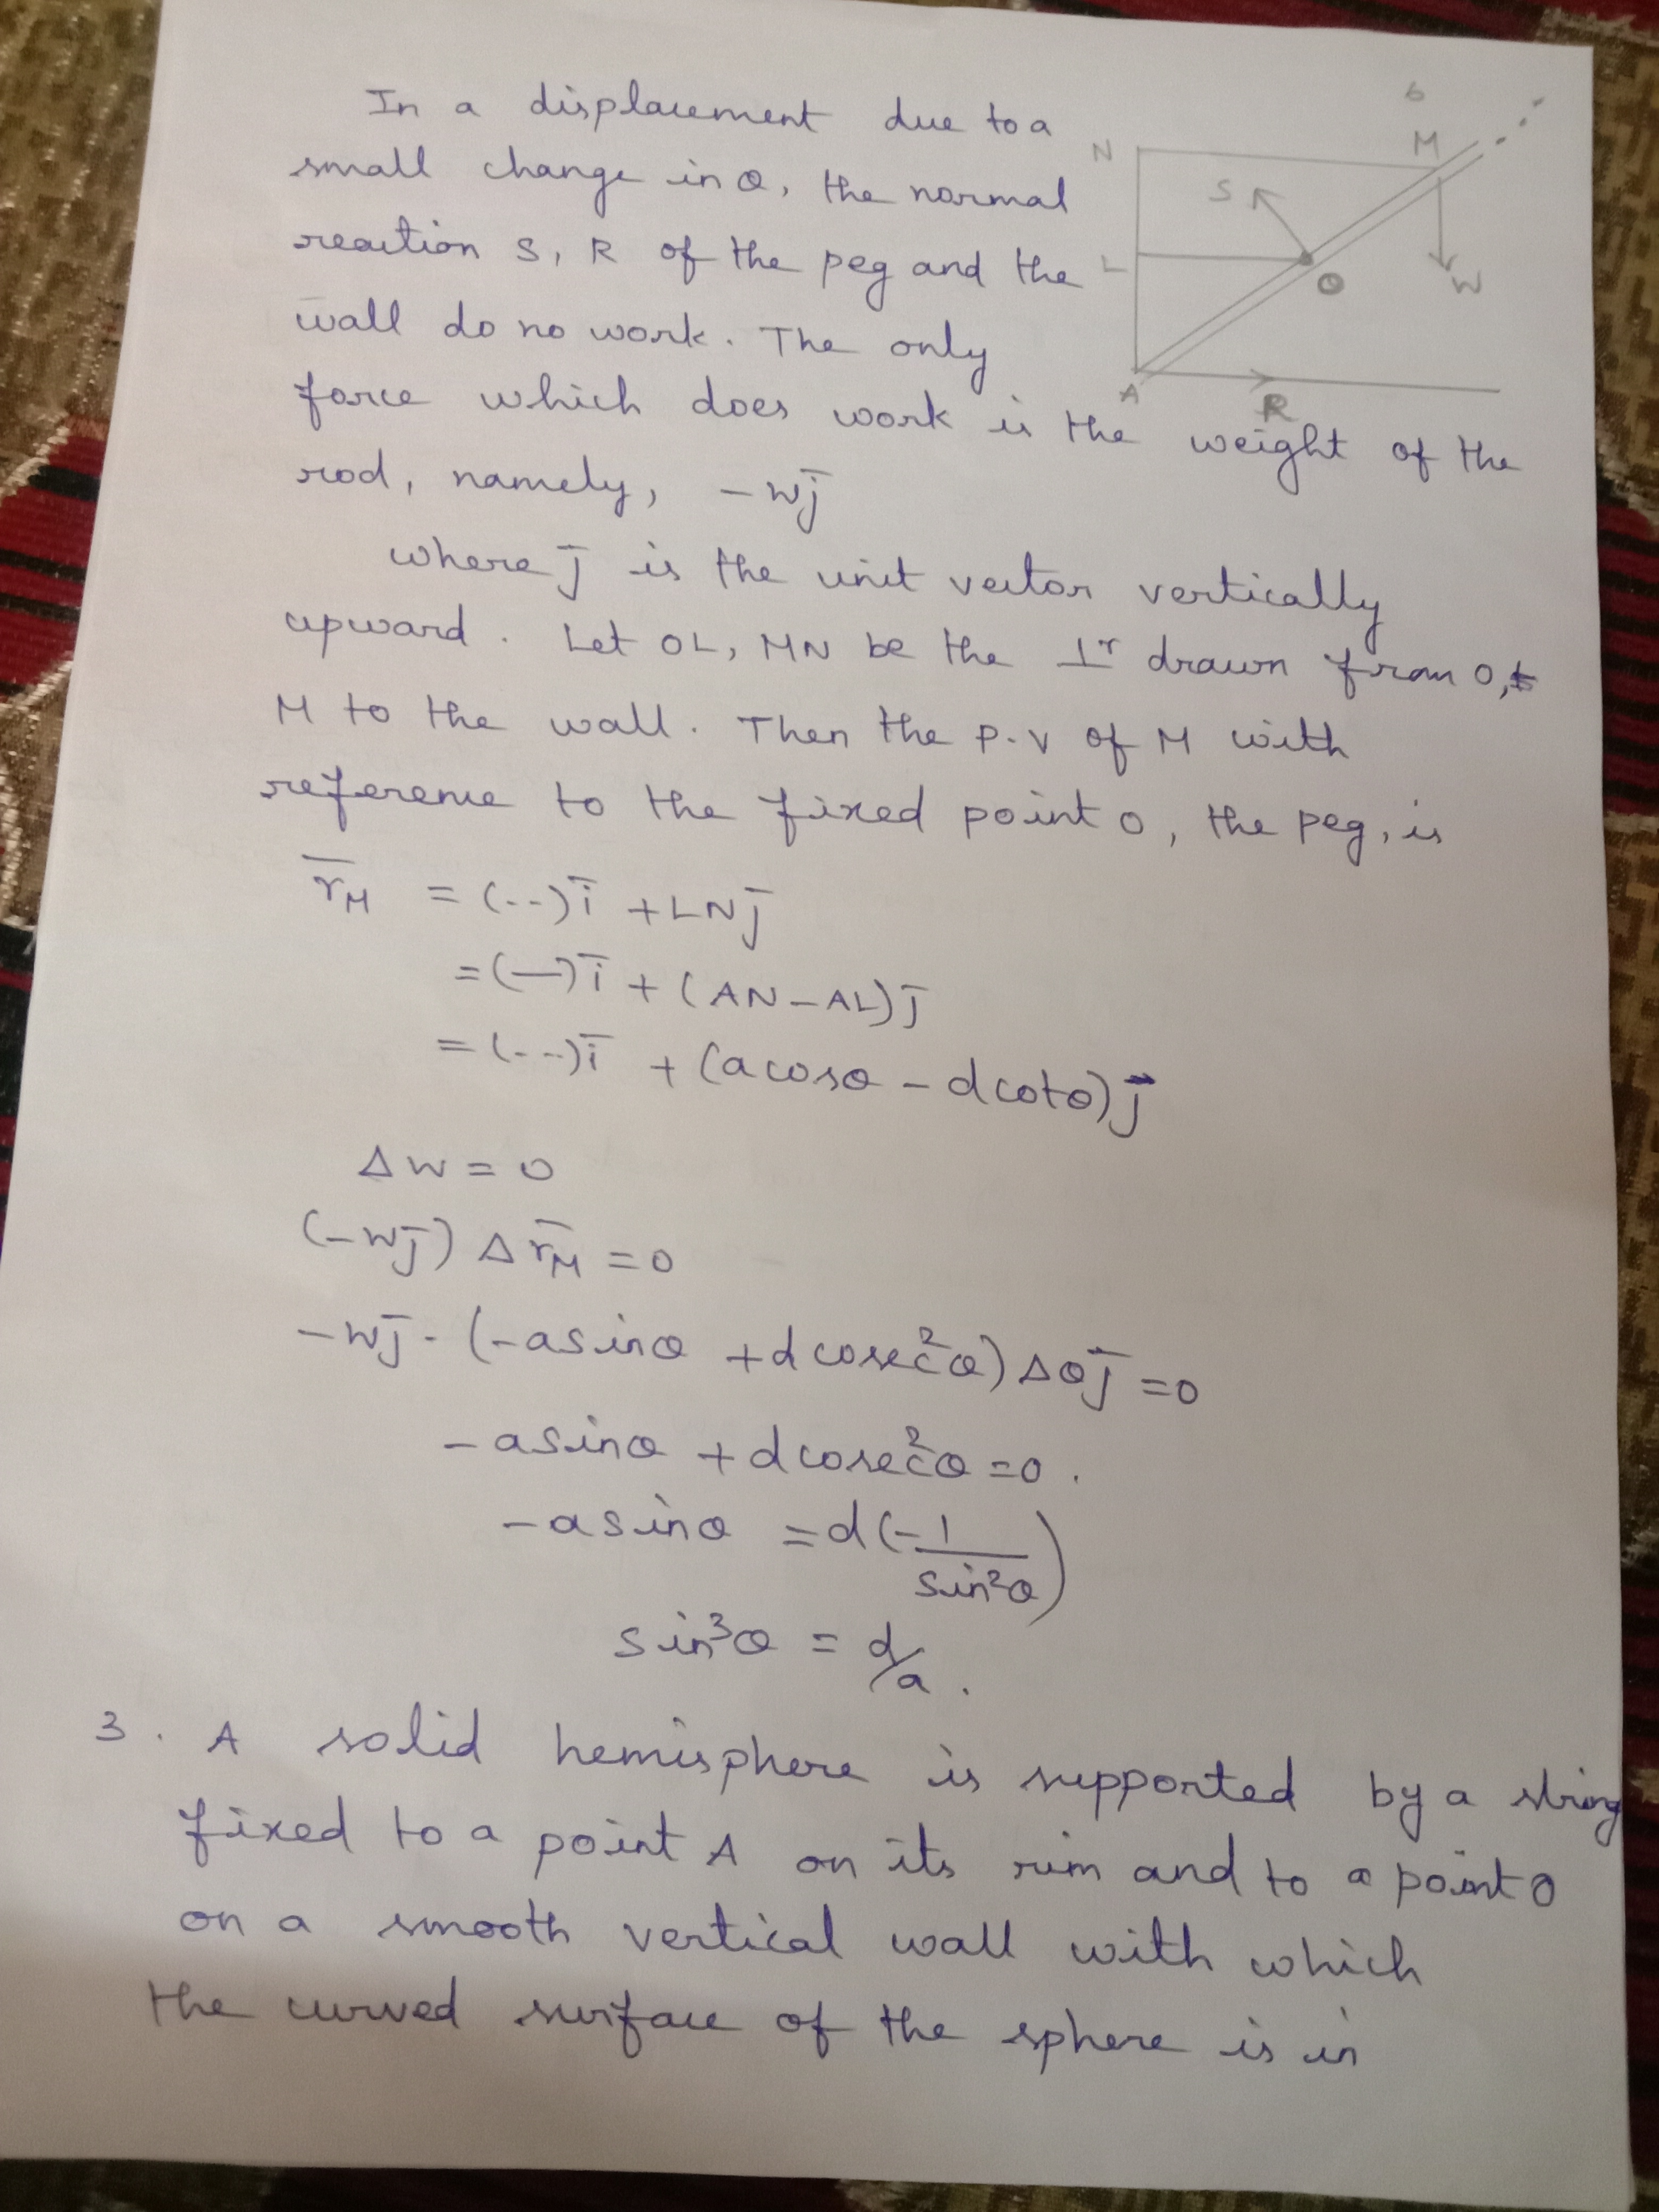 In a displacement due to a
small change in θ, the normal
reaction S, R of the peg and the
wall do no work. The only
force which does work is the weight of the
rod, namely, -Wj̄
where j̄ is the unit vector vertically
upward. Let OL, MN be the ⊥r drawn from O,
M to the wall. Then the P.V of M with
reference to the fixed point O, the peg, is
r̄_M = (--)ī + LNj̄
= (—)ī + (AN - AL)j̄
= (---)ī + (a cosθ - d cotθ)j̄
ΔW = 0
(-Wj̄) Δr̄_M = 0
-Wj̄ · (-a sinθ + d cosec²θ) Δθj̄ = 0
-a sinθ + d cosec²θ = 0.
-a sinθ = d(-1/sin²θ)
sin³θ = d/a.
3. A solid hemisphere is supported by a string
fixed to a point A on its rim and to a point O
on a smooth vertical wall with which
the curved surface of the sphere is in
6
N
M
S
L
O
W
A
R